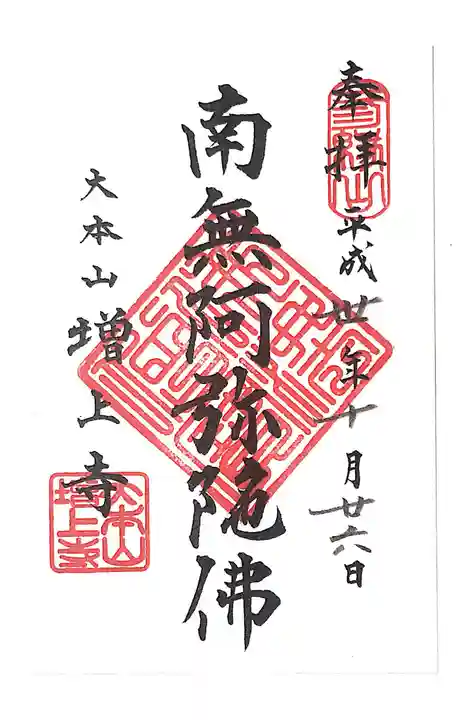 奉拝
平成卅年十月廿六日
南無阿弥陀佛
大本山増上寺
大本山
増上寺